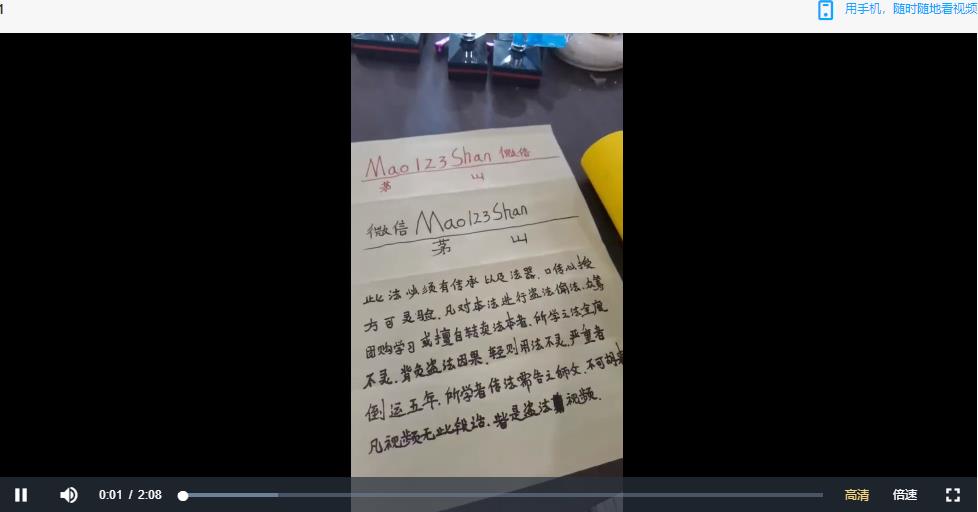 1
用手机，随时随地看视频
Mao123Shan 微信
茅 山
微信 Mao123Shan
茅 山
此法必须有传承以及法器.口传心授
方可灵验.凡对本法进行盗法偷法.众筹
团购学习或擅自转卖法本者.所学之法全度
不灵.背负盗法因果.轻则用法不灵.严重者
倒运五年.所学者传法需告之师父.不可胡
凡视频无此段话.皆是盗法视频.
0:01 / 2:08
高清
倍速